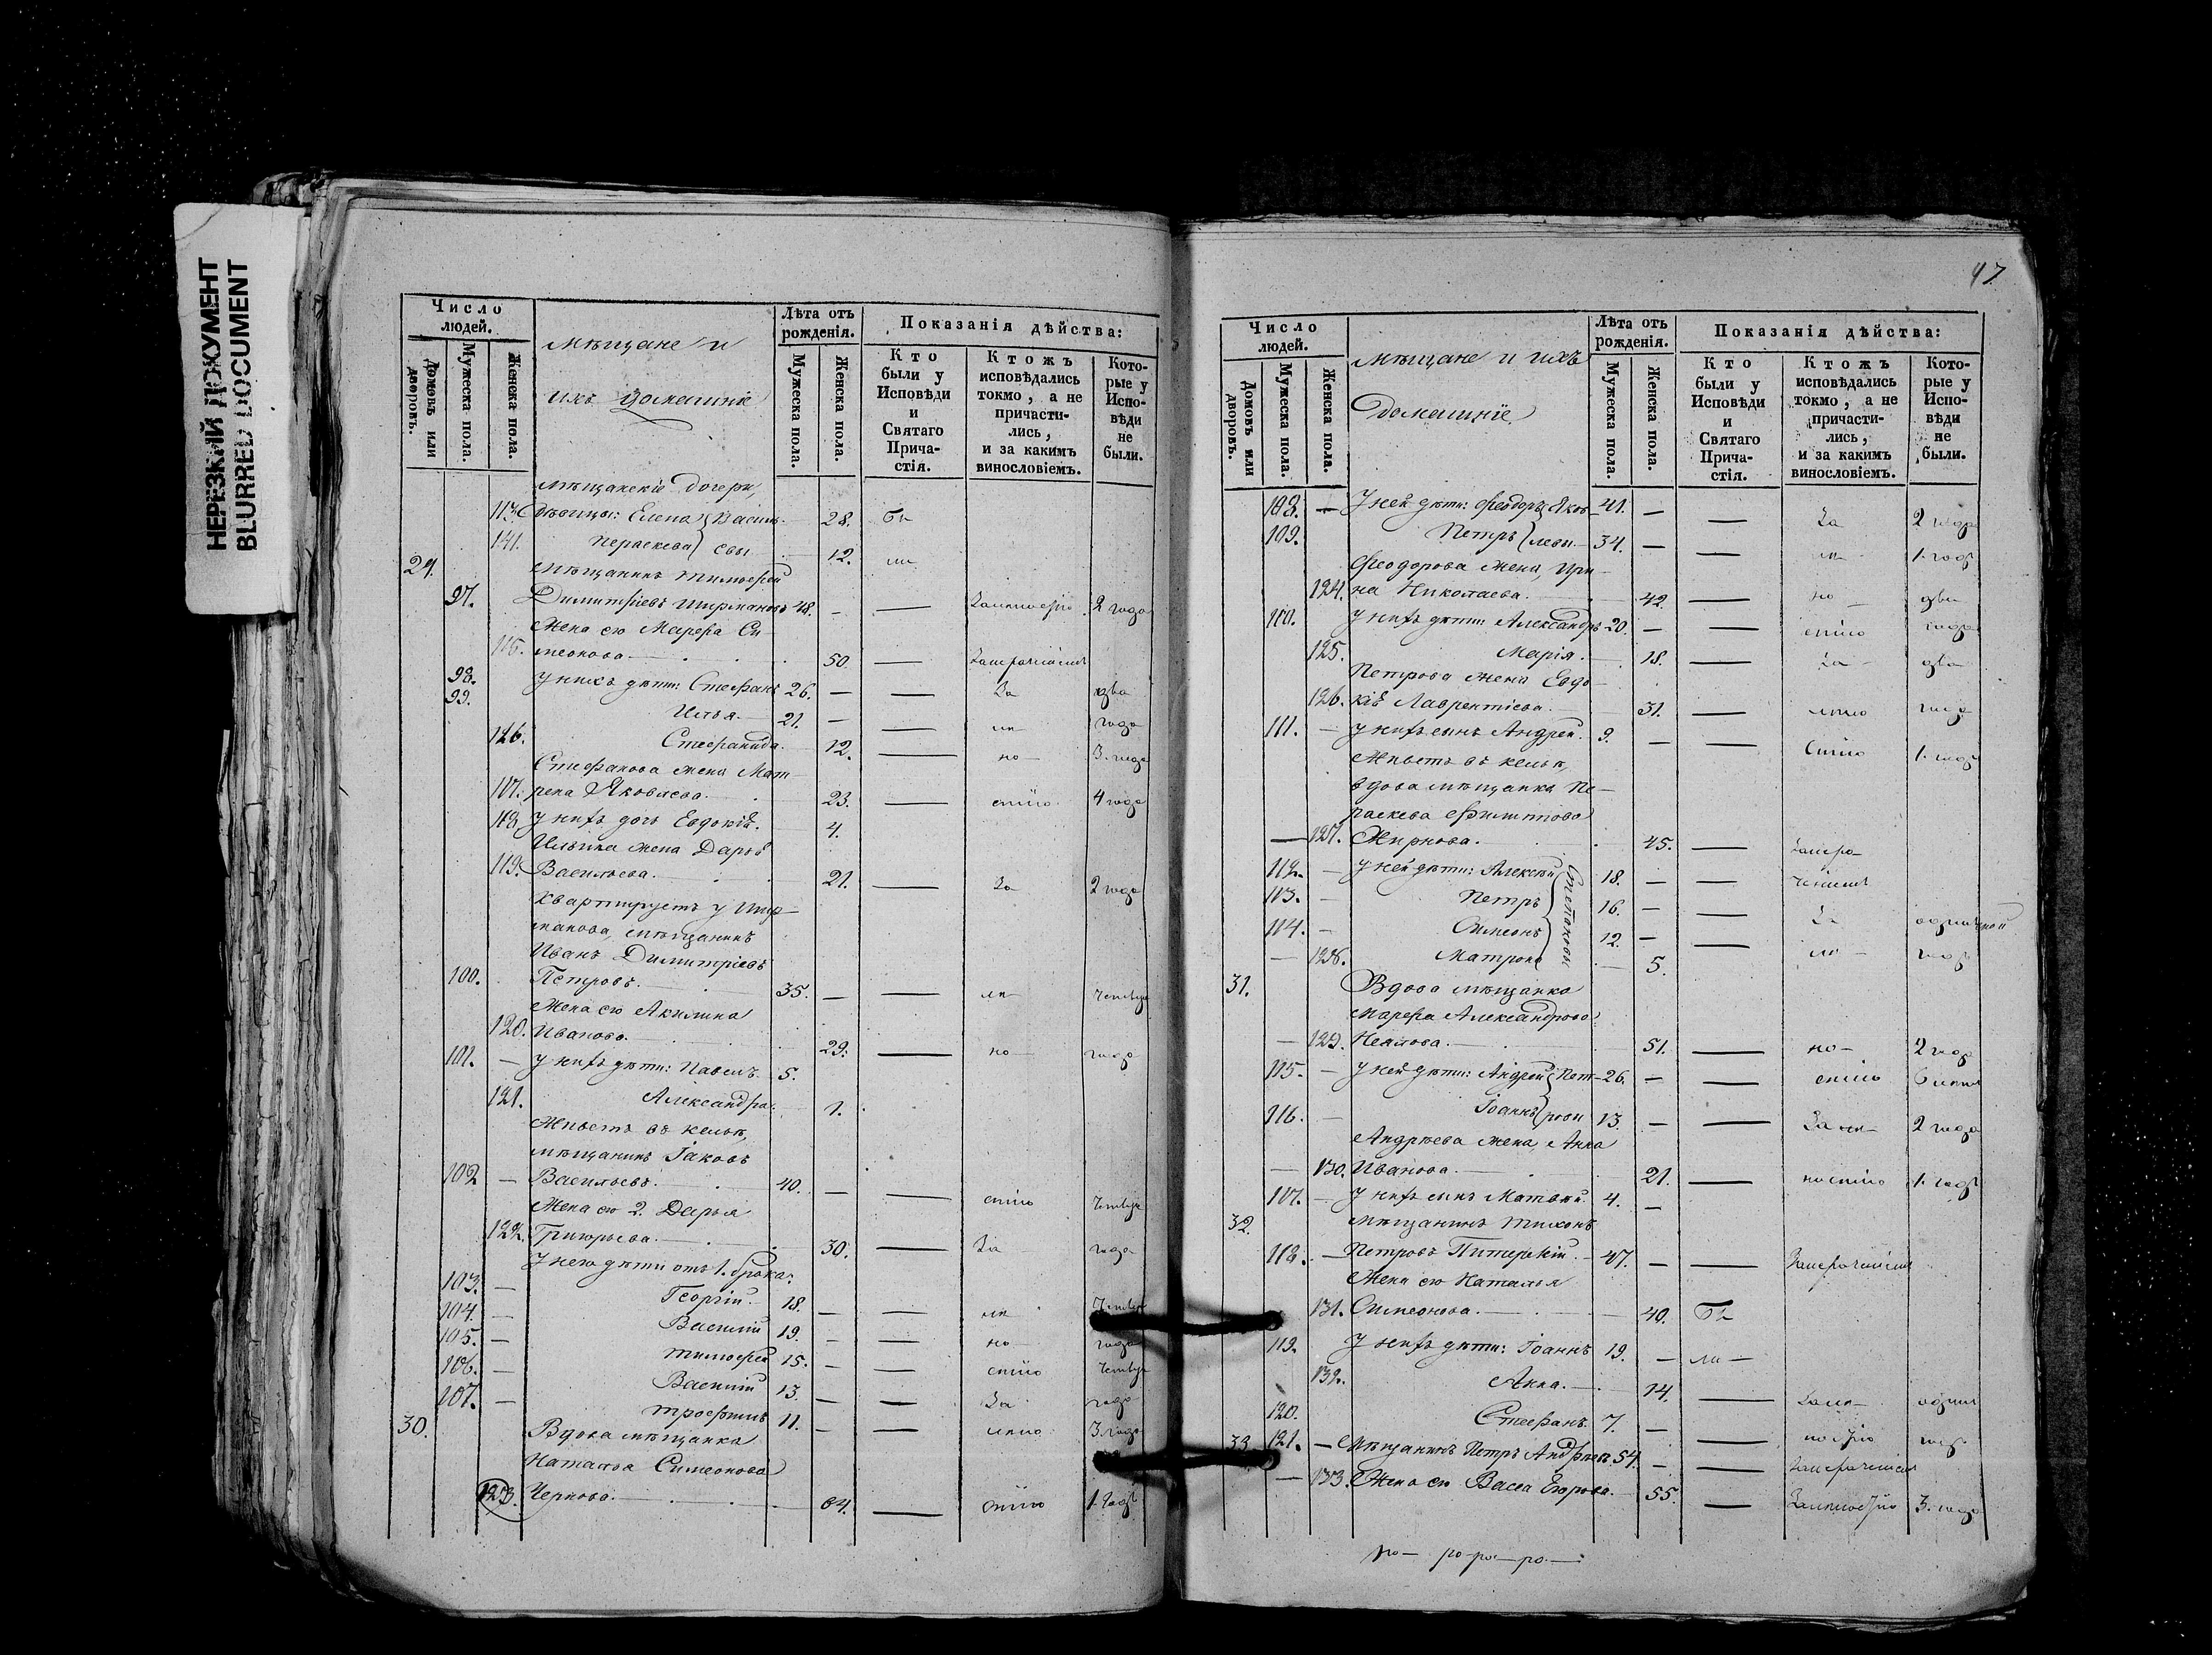 НЕРЕЗКИЙ ДОКУМЕНТ
BLURRED DOCUMENT
Число людей.
Домовъ или дворовъ.
Мужеска пола.
Женска пола.
мѣщане и
ихъ домашніе
Лѣта отъ рожденія.
Мужеска пола.
Женска пола.
Показанія дѣйства:
Кто были у Исповѣди и Святаго Прича- стія.
Ктожъ исповѣдались токмо, а не причасти- лись, и за какимъ винословіемъ.
Кото- рые у Испо- вѣди не были.
мѣщанскіе дочери,
дѣвицы: Елена Василь- 28. Бы
Параскева евы 12. ли
29. мѣщанинъ Тимофей
97. Димитріевъ Ширмановъ 48. — — 2 года
Жена его Марфа Си-
меонова. 50 —
98. У нихъ дѣти: Стефанъ 26. — — За два
99. Илья 21. — — ле года
116. Стефанида. 12. — но 3 года
Стефанова жена Мат-
117. рена Яковлева. 23. — стію 4 года
118. У нихъ дочь Евдокія. 4.
Ильина жена Дарья
119. Васильева. 21. — За 2 года
Квартируетъ у Шир-
манова, мѣщанинъ
Иванъ Димитріевъ
100. Петровъ. 35. — — ле четыре
Жена его Акилина
120. Иванова. 29. — но года
101. — У нихъ дѣти: Павелъ 5.
121. Александра. 1.
Живетъ въ кельѣ,
мѣщанинъ Іаковъ
102 — Васильевъ. 40. — — стію четыре
Жена его 2. Дарья
122. Григорьева. 30. — За года
У него дѣти отъ 1. брака:
103. — Георгій 18. — — ле четыре
104. — Василій 19. — — но года
105. — Тимофей 15. — — стію четыре
106. — Василій 13. — — За года
107. — Трофимъ 11. — — 3 года
30. Вдова мѣщанка
Наталья Симеонова
123. Чернова. 64. — стію 1. годъ
47
Число людей.
Домовъ или дворовъ.
Мужеска пола.
Женска пола.
мѣщане и ихъ
домашніе
Лѣта отъ рожденія.
Мужеска пола.
Женска пола.
Показанія дѣйства:
Кто были у Исповѣди и Святаго Прича- стія.
Ктожъ исповѣдались токмо, а не причасти- лись, и за какимъ винословіемъ.
Кото- рые у Испо- вѣди не были.
108. — У ней дѣти: Феодоръ Яков- 41. — — За 2 года
109. Петръ левы 34. — — ле 1 годъ
Феодорова жена, Ири-
124. на Николаева. 42. — но два
110. У нихъ дѣти: Александръ 20. — — стію года
125. Марія. 18. — За два
Петрова жена Евдо-
126. кія Лаврентіева. 31. — года
111. — У нихъ сынъ Андрей. 9. — — стію 1. годъ
Живетъ въ кельѣ,
вдова мѣщанка Па-
раскева Филиппова
— 127. Жирнова. 45. —
112. — У ней дѣти: Алексѣй 18. — —
113. — Петръ 16. — — За
114. — Симеонъ 12. — —
— 128. Матрона 5.
Степановы
31. Вдова мѣщанка
Марфа Александрова
— 129. Неялова. 51. — но 2 год
115. — У ней дѣти: Андрей Пет- 26. — — стію 6 лѣтъ
116. — Іоаннъ ровы 13. — — 2 года
Андреева жена, Анна
— 130. Иванова. 21. — 1. годъ
117. — У нихъ сынъ Матвѣй. 4. —
32. мѣщанинъ Тихонъ
118. — Петровъ Питерскій. 47. — —
Жена его Наталья
131. Симеонова. 40. Бы
119. У нихъ дѣти: Іоаннъ 19. — ли —
132. Анна. 14. — одинъ
120. Стефанъ. 7. — — год
33. 121. — Мѣщанинъ Петръ Андреевъ 54. — —
— 133. Жена его Васса Егорова. 55. — 3. года